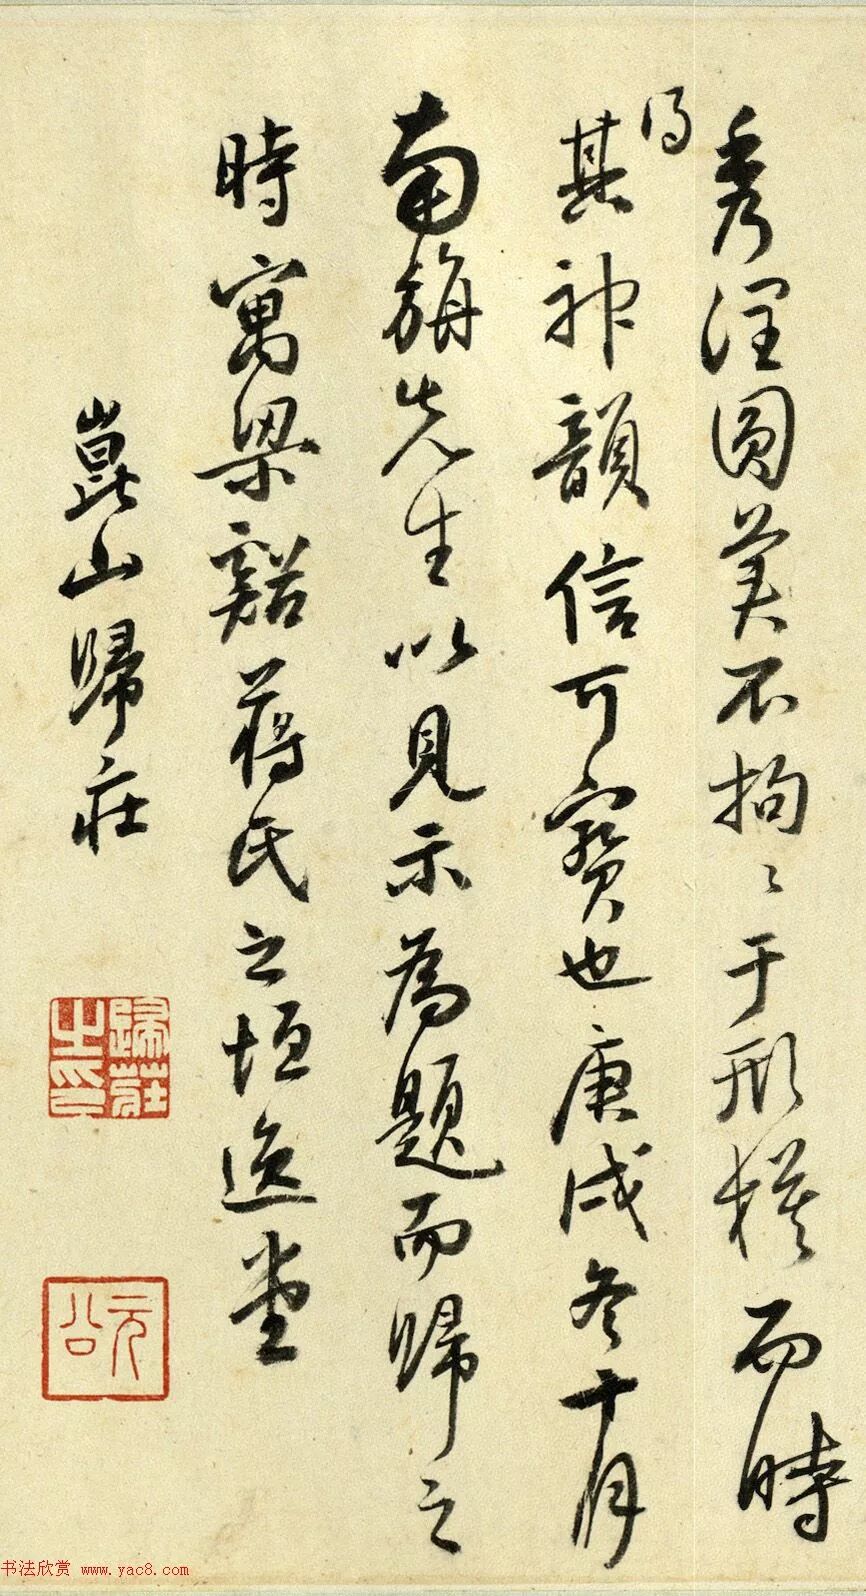 秀潤圓美不拘〻于形模而時
得
其神韻信可寶也庚戌冬十月
南旃先生以見示為題而歸之
時寓梁谿蔣氏之垣逸堂
崑山歸庄
歸莊之印
元公
书法欣赏 www.yac8.com